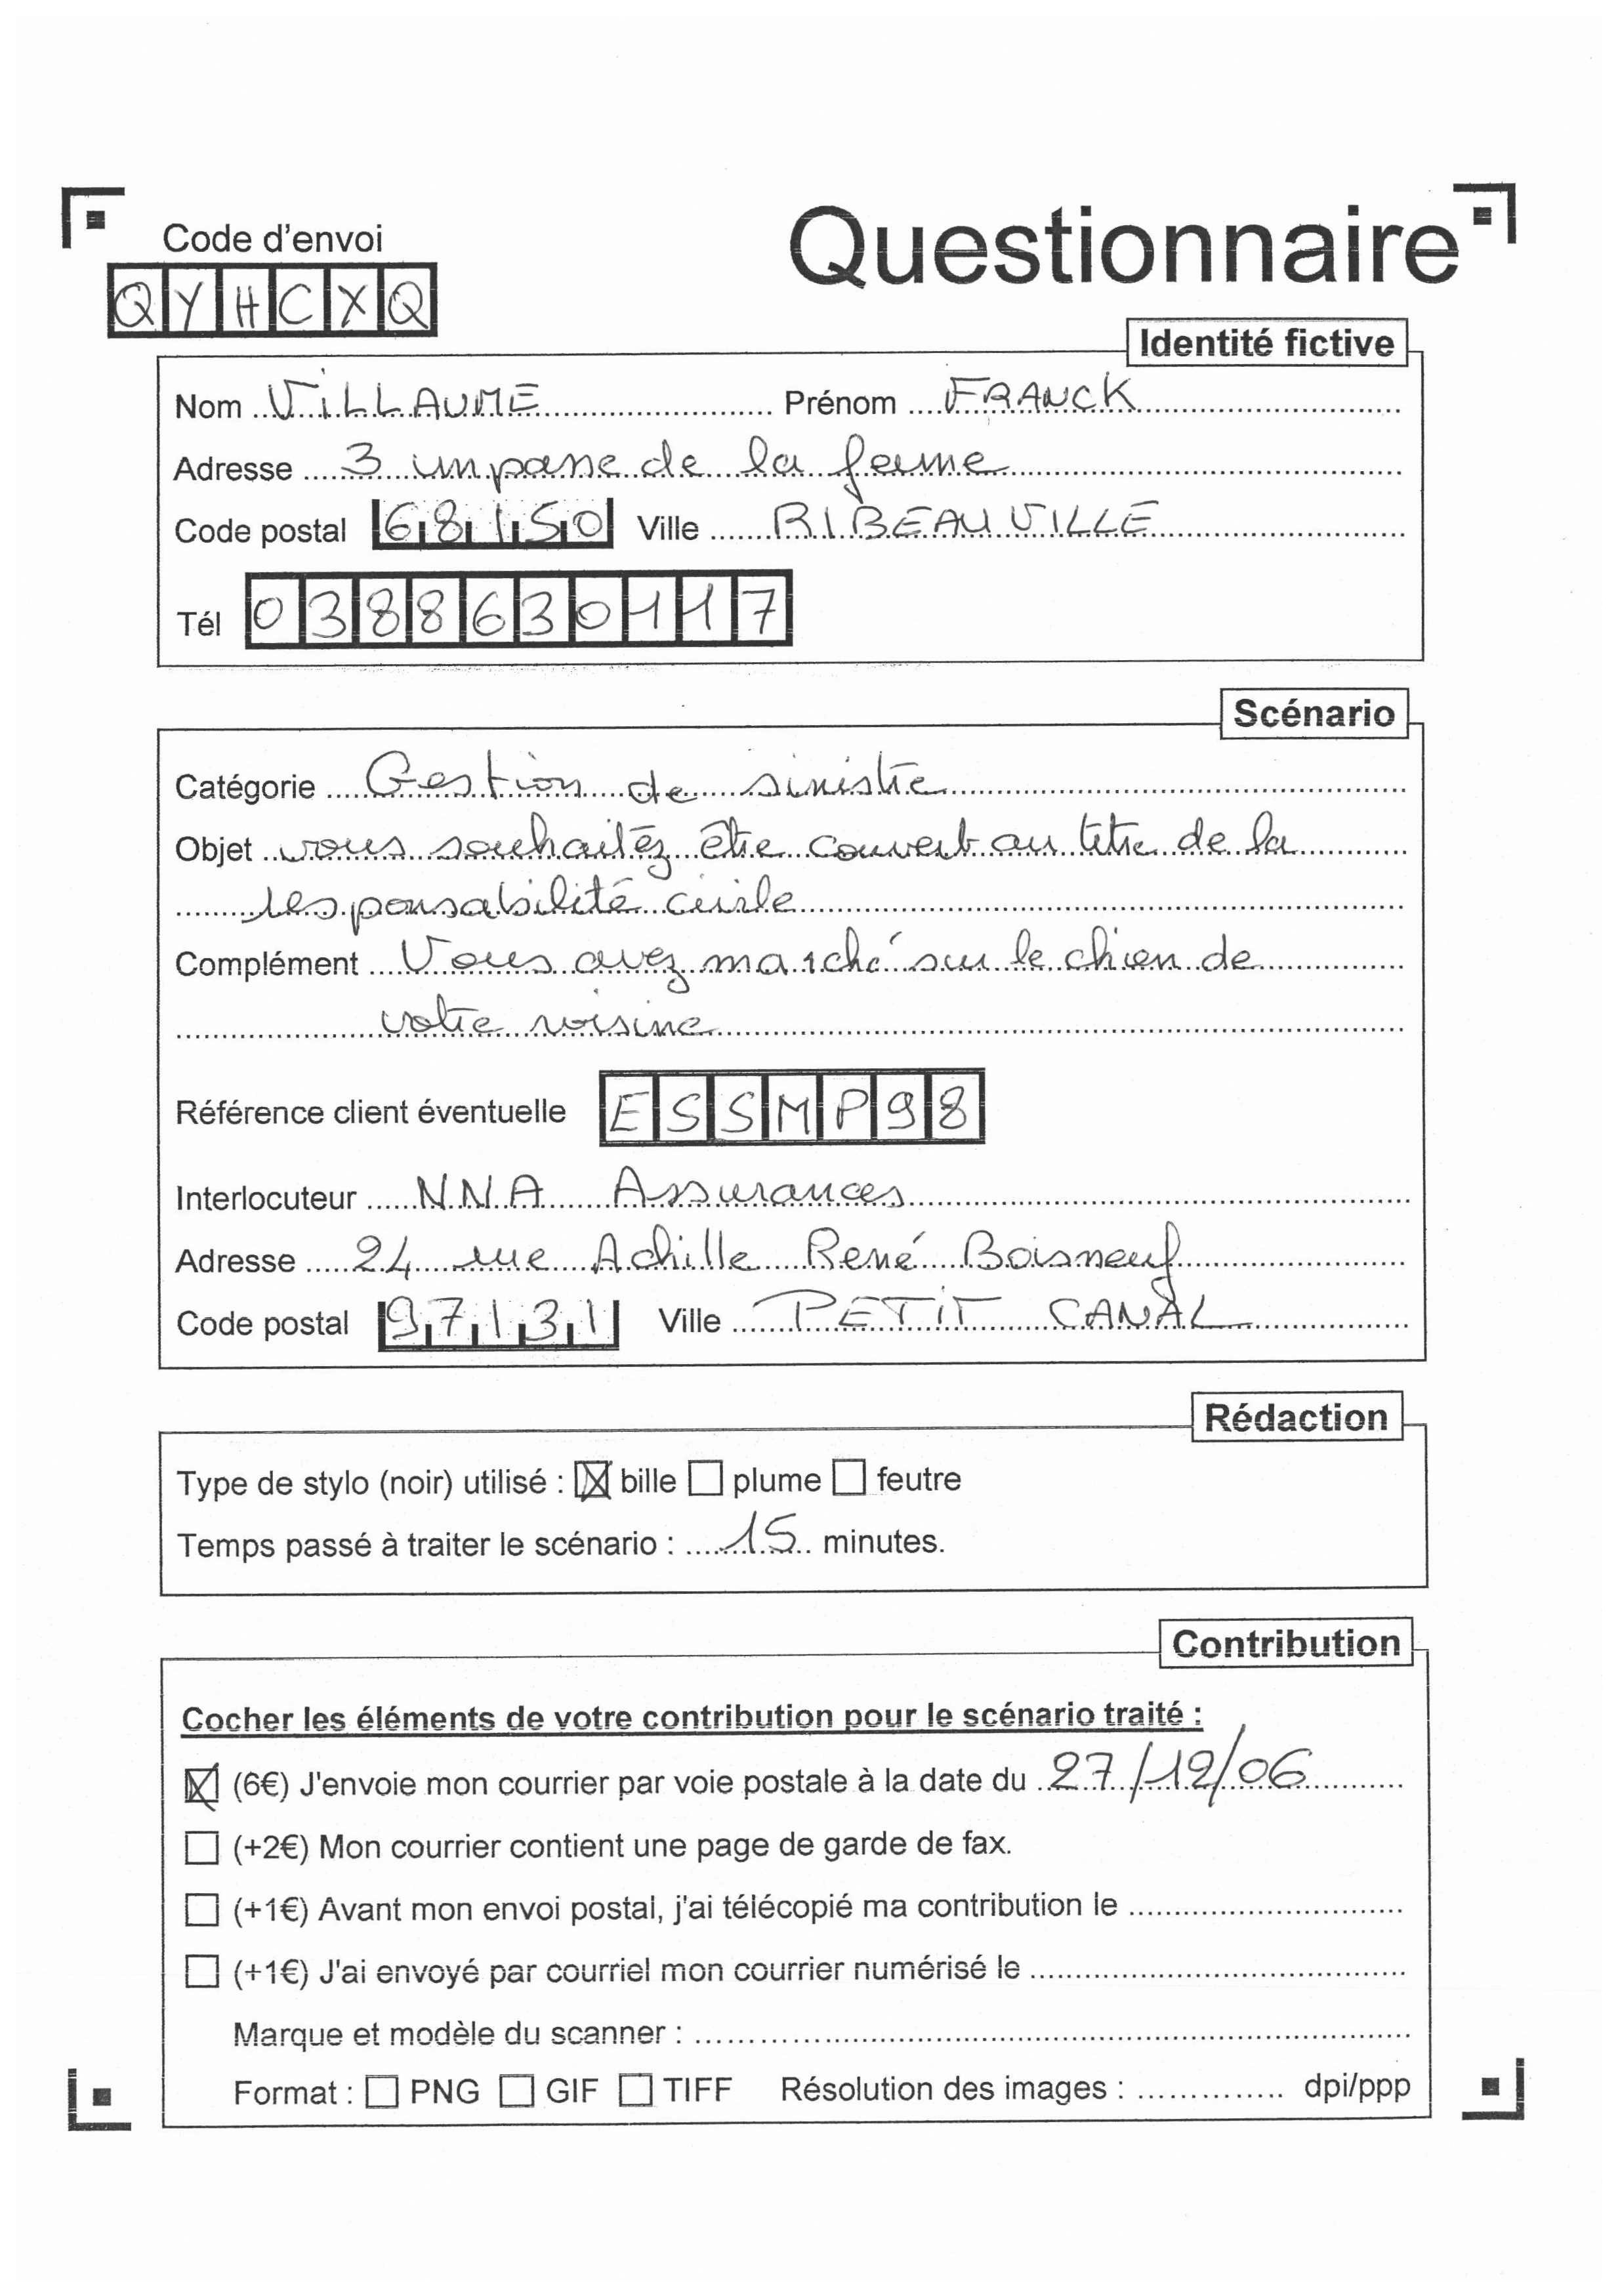 Code d'envoi
QYHCXQ
Questionnaire
Identité fictive
Nom ViLLAUME Prénom FRANCK
Adresse 3 impasse de la ferme
Code postal 68150 Ville RIBEAUVILLE
Tél 0388630117
Scénario
Catégorie Gestion de sinistre
Objet vous souhaitez être couvert au titre de la
responsabilité civile
Complément Vous avez marché sur le chien de
votre voisine
Référence client éventuelle ESSMP98
Interlocuteur NNA Assurances
Adresse 24 rue Achille René Boisneuf
Code postal 97131 Ville PETiT CANAL
Rédaction
Type de stylo (noir) utilisé : bille plume feutre
Temps passé à traiter le scénario : 15 minutes.
Contribution
Cocher les éléments de votre contribution pour le scénario traité :
(6€) J'envoie mon courrier par voie postale à la date du 27/12/06
(+2€) Mon courrier contient une page de garde de fax.
(+1€) Avant mon envoi postal, j'ai télécopié ma contribution le
(+1€) J'ai envoyé par courriel mon courrier numérisé le
Marque et modèle du scanner :
Format : PNG GIF TIFF Résolution des images : dpi/ppp